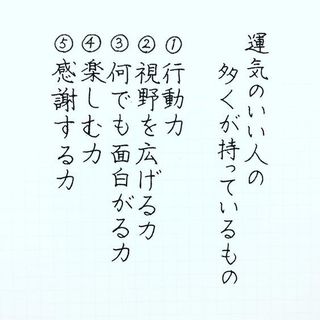 運気のいい人の
多くが持っているもの
①行動力
②視野を広げる力
③何でも面白がる力
④楽しむ力
⑤感謝する力